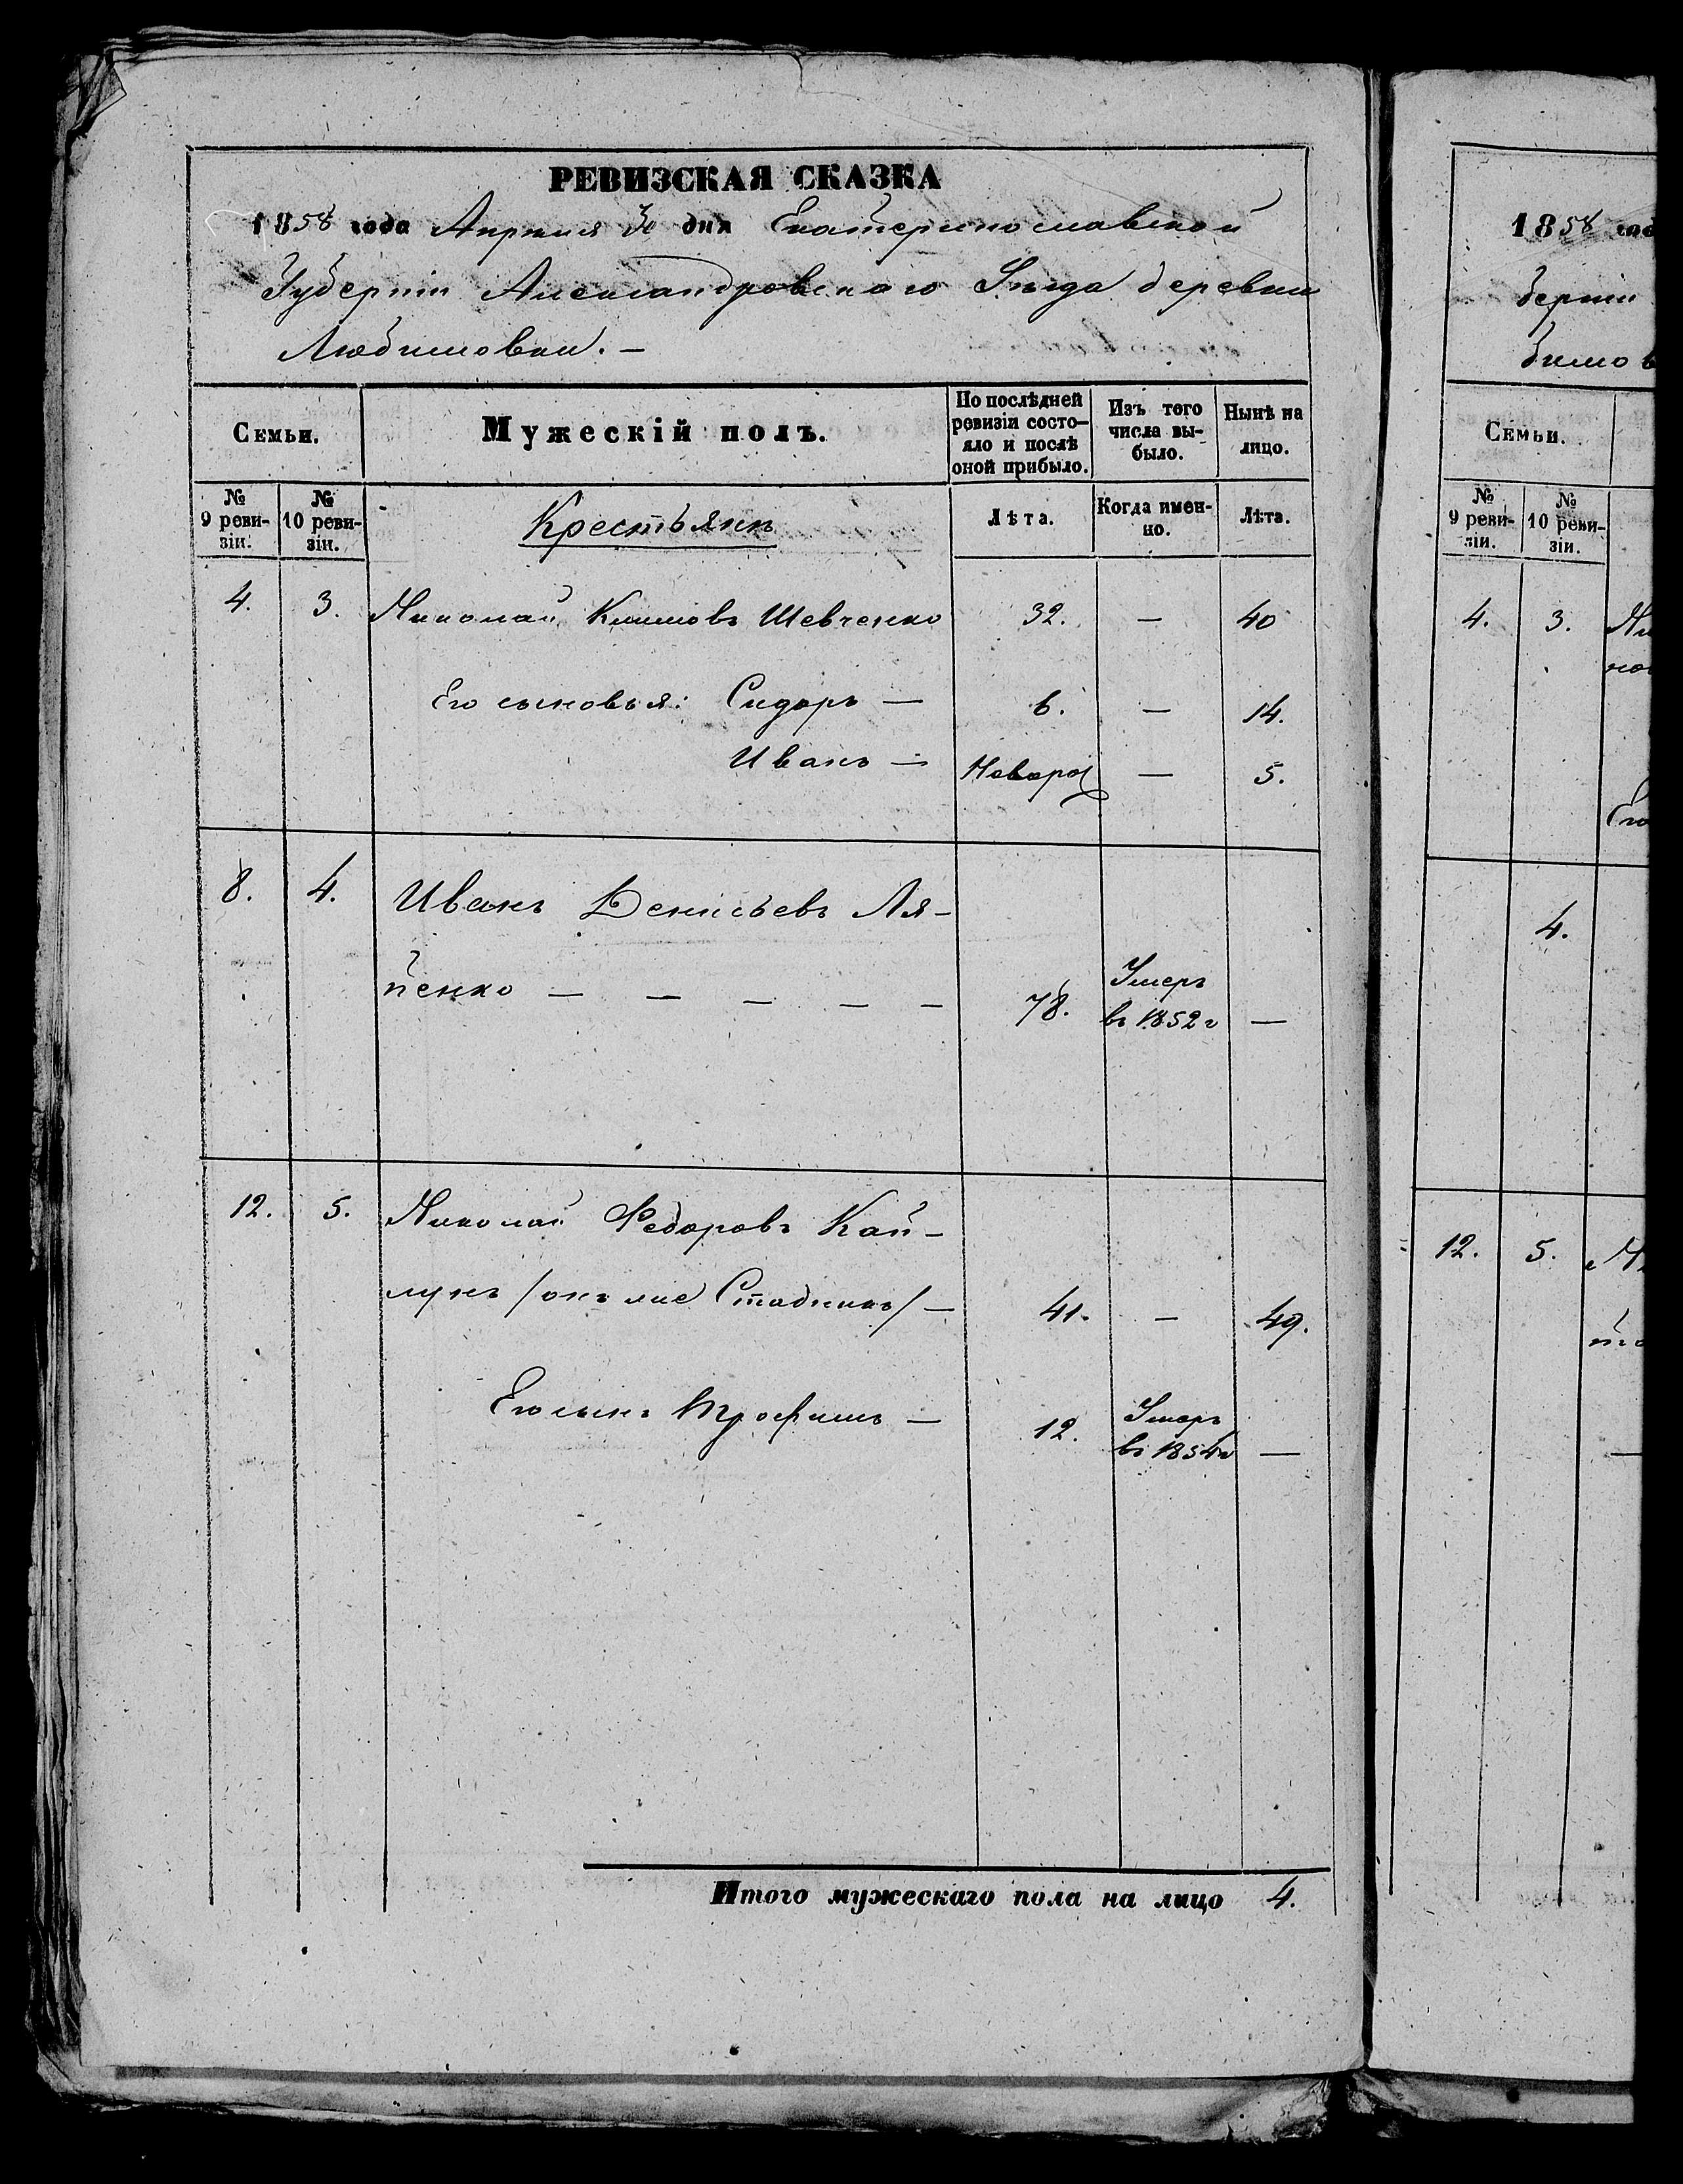 РЕВИЗСКАЯ СКАЗКА
1858 года Апреля 30 дня Екатеринославской
Губерніи Александровскаго Уѣзда деревни
Любимовки. —
Семьи.
Мужескій полъ.
По послѣдней ревизіи состояло и послѣ оной прибыло.
Изъ того числа выбыло.
Нынѣ на лицо.
№ 9 ревизіи.
№ 10 ревизіи.
Крестьянѣ
Лѣта.
Когда именно.
Лѣта.
4. 3. Николай Климовъ Шевченко 32. — 40
Его сыновья: Сидоръ — 6. — 14.
Иванъ — Новорож — 5.
8. 4. Иванъ Денисьевъ Ля-
пенко — — — — — 78. Умеръ въ 1852 г —
12. 5. Николай Федоровъ Кай-
лукъ /онъ же Стадникъ/ — 41. — 49.
Его сынъ Трофимъ — 12. Умеръ въ 1854 г —
Итого мужескаго пола на лицо 4.
1858 год
берніи
бимов
Семьи.
№ 9 ревизіи.
№ 10 ревизіи.
4. 3. Ни
Его
4.
12. 5.